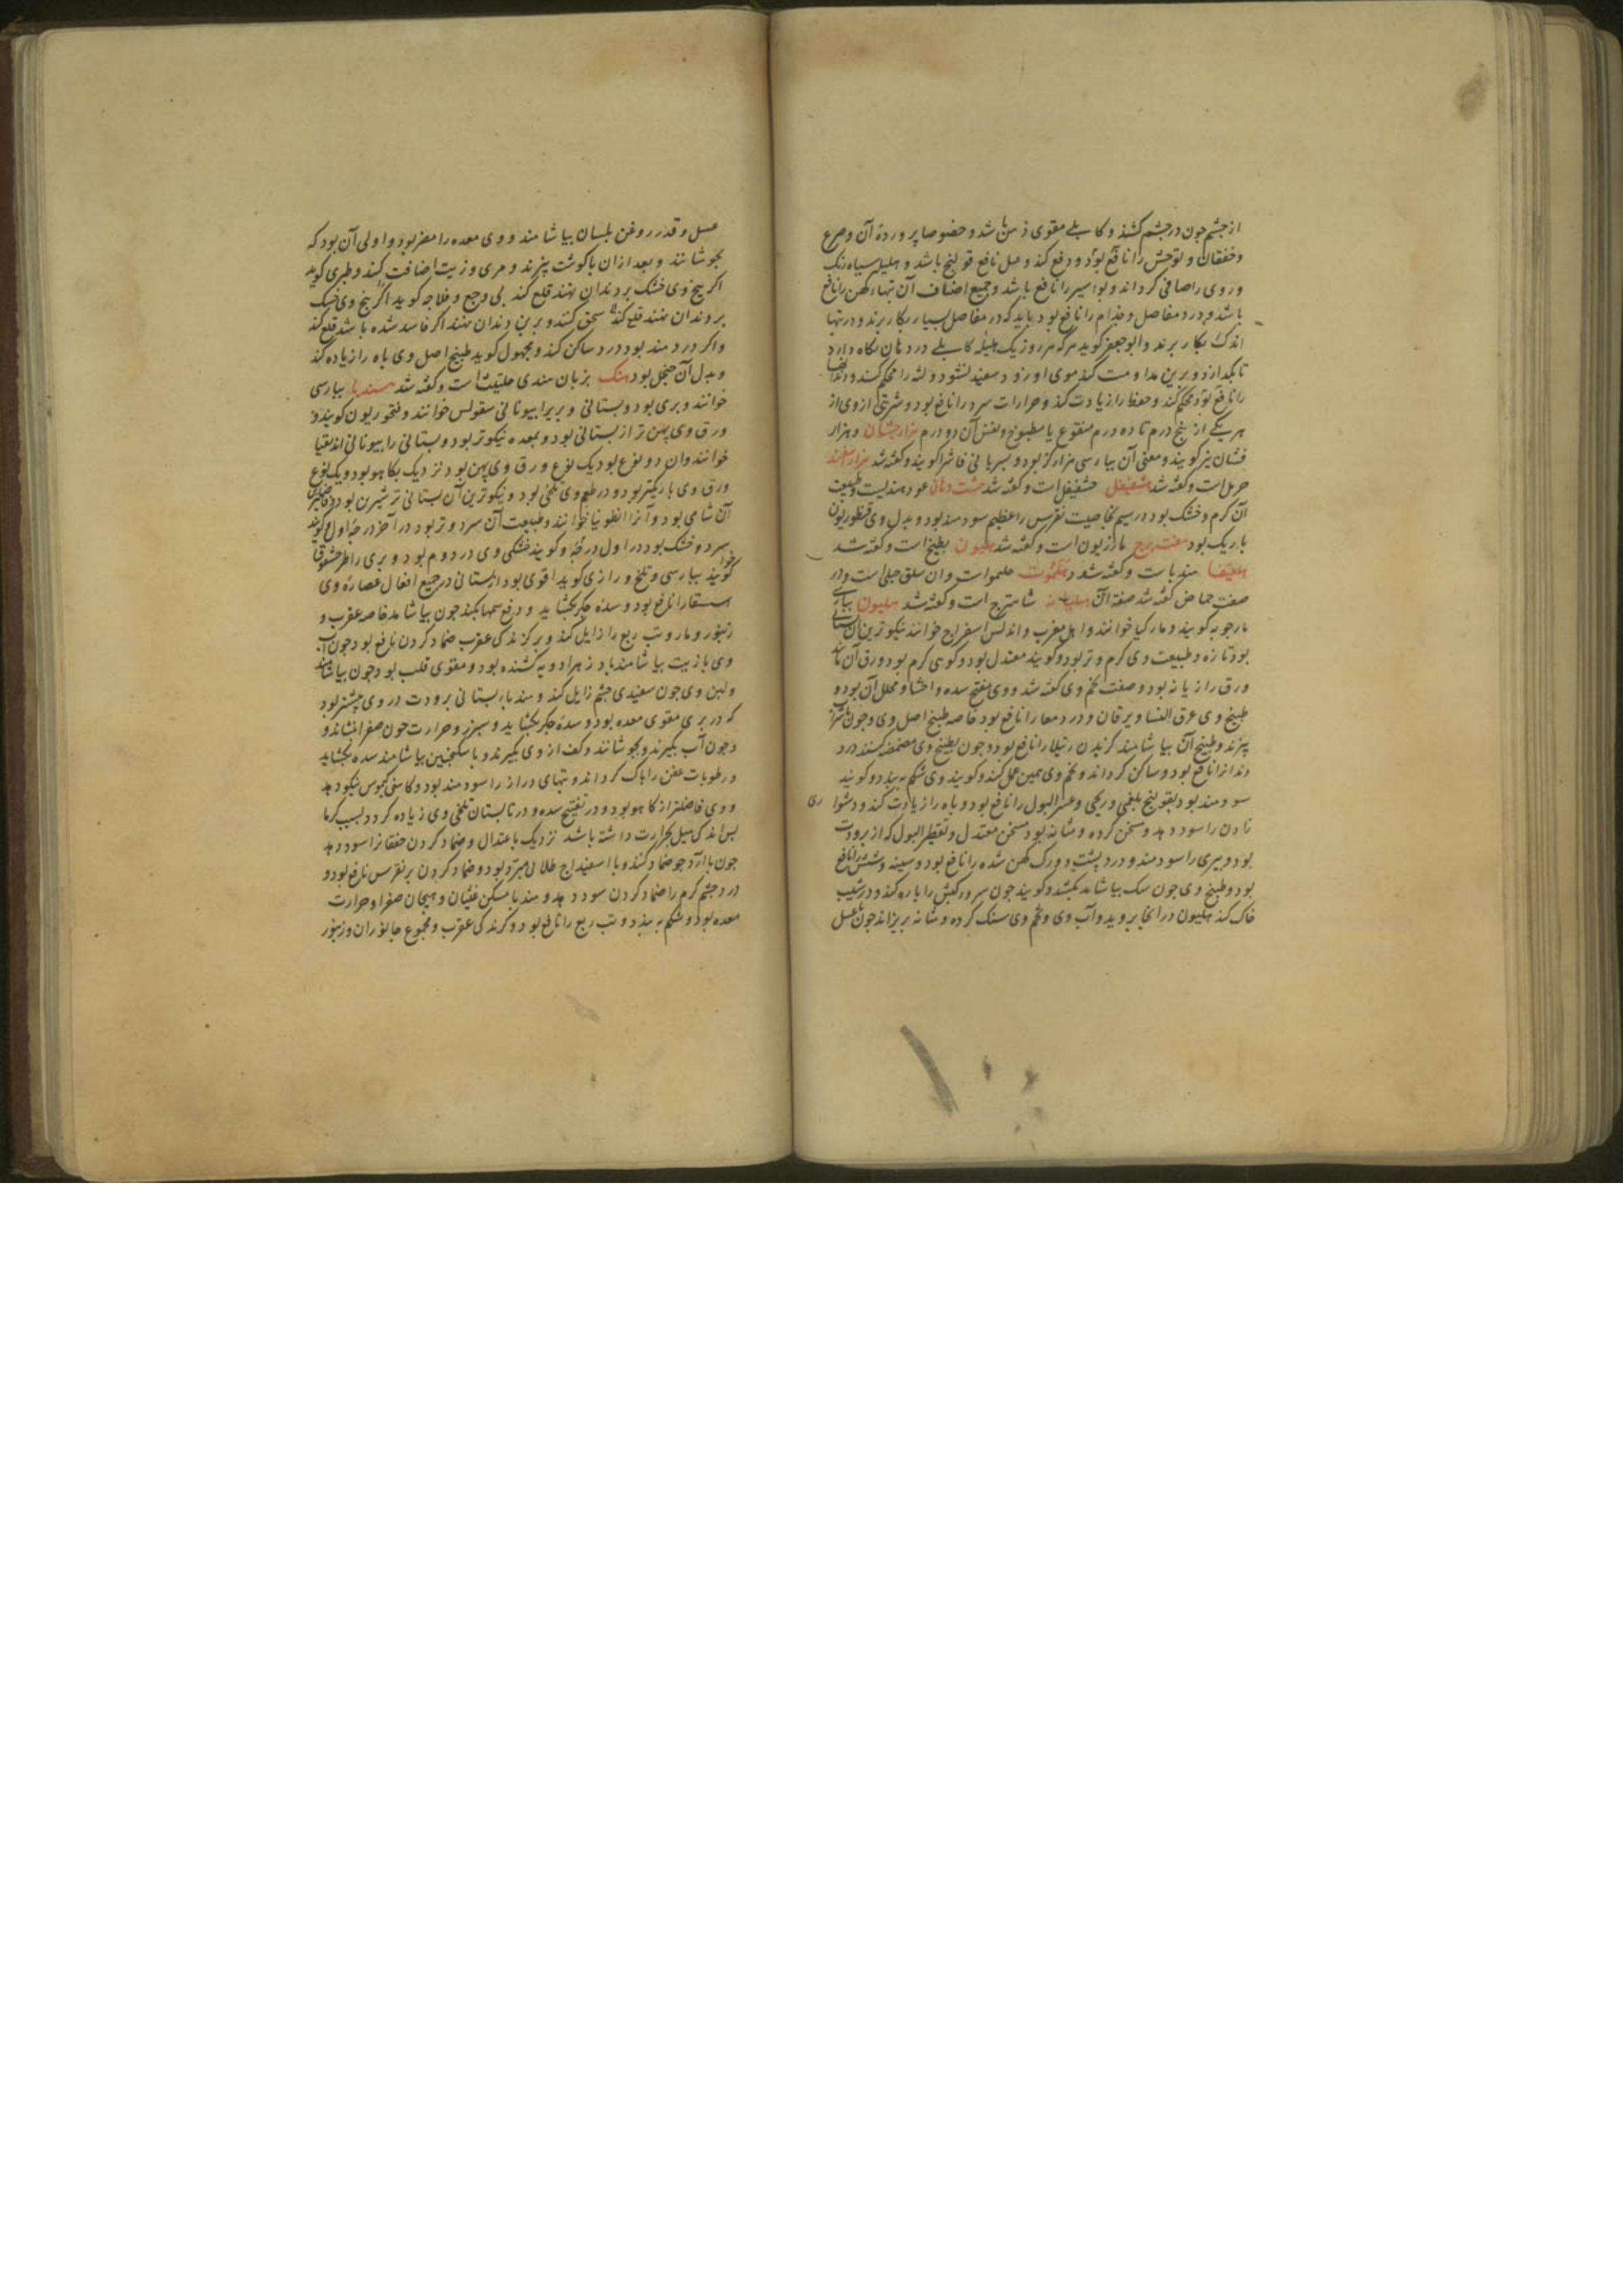 از چشم چون در چشم کشند و کابلی مقوی ذهن باشد و خصوصا پرورده آن و صرع
و خفقان و توحش را نافع بود و دفع کند و عمل نافع قولنج باشد و هلیله سیاه رنک
و روی را صافی کرداند و بواسیر را نافع باشد و جمیع اصناف آن تبهاء کهن را نافع
باشد و درد مفاصل و جذام را نافع بود باید که در مفاصل بسیار بکار برند و در تبها
اندک بکار برند و ابو جعفر کوید هرکه هر روز یک هلیله کابلی در دهان نکاه دارد
تا بکدازد و برین مداومت کند موی او زود سفید نشود و لثه را محکم کند و دندانها
را نافع بود محکم کند و حفظ را زیادت کند و حرارات سرد را نافع بود و شربتی از وی از
هر یکی از پنج درم تا ده درم منقوع یا مطبوخ و نفس آن دو درم هزارجشان و هزار
فشان نیز کویند و معنی آن بپارسی هزار کز بود و بسریانی فاشرا کویند و کفته شد هزار اسفند
حرمل است و کفته شد هشفیفل حشفیفل است و کفته شد هشت دهان عود هندیست و طبیعت
آن کرم و خشک بود در سیم بخاصیت نقرس را عظیم سودمند بود و بدل وی قنطوریون
باریک بود هفت برج مازریون است و کفته شد هلیون بطیخ است و کفته شد
هندباست و کفته شد و حلموا است و ان سلق جبلی است و در
صفت حماض کفته شد صفة آن شاهترج است و کفته شد هلیون بپارسی
مارجوبه کویند و مارکیا خوانند و اهل مغرب و اندلس اسفراج خوانند نیکوترین آن بستانی
بود تازه و طبیعت وی کرم و تر بود و کویند معتدل بود و کوهی کرم بود و ورق آن مانند
ورق رازیانه بود و صفت تخم وی کفته شد و وی مفتح سده و احشا و محلل آن بود و
طبیخ وی عرق النسا و یرقان و درد معا را نافع بود خاصه طبیخ اصل وی و چون با شراب
پزند و طبیخ آن بیاشامند کزیدن رتیلا را نافع بود و چون بطبیخ وی مضمضه کنند درد
دندانرا نافع بود و ساکن کرداند و تخم وی همین عمل کند و کویند وی شکم ببندد و کویند
سودمند بود بقولنج بلغمی و ریحی و عسر البول را نافع بود و باه را زیادت کند و دشوا ری
زادن را سود دهد و سخن کرده و مثانه بود مسخن معتدل و تقطیر البول که از برودت
بود و پیری را سودمند و درد پشت و ورک کهن شده را نافع بود و سینه و شش را نافع
بود و طبیخ وی چون سک بیاشامد بکشد و کویند چون سرو کبش را پاره کند و در شیب
خاک کند هلیون در انجا بروید و آب وی و تخم وی سنک کرده و مثانه بریزاند چون با عسل
عسل و قدر روغن بلسان بیاشامند و وی معده را مضر بود و اولی آن بود که
بجوشانند و بعد از ان با کوشت پزند و مری و زیت اضافت کنند و طبری کوید
اکر بیخ وی خشک بر دندان نهند قلع کند بی وجع و فلاحه کوید اکر بیخ وی خشک
بر دندان نهند قلع کند سحق کنند و بر بن دندان نهند اکر فاسد شده باشد قلع کند
و اکر دردمند بود درد ساکن کند و مجهول کوید طبیخ اصل وی باه را زیاده کند
و بدل آن بود هنک بزبان هندی حلتیت است و کفته شد هندبا بپارسی
خوانند و بری بود و بستانی و بریرا بیونانی سقولس خوانند و نخوریون کویند و
ورق وی پهن تر از بستانی بود و بمعده نیکوتر بود و بستانی را بیونانی اندیقیا
خوانند و ان دو نوع بود یک نوع ورق وی پهن بود نزدیک بکاهو بود و یک نوع
ورق وی باریکتر بود و در طعم وی تلخی بود و نیکوترین آن بستانی تر شیرین بود و فاضلترین
آن شامی بود و آنرا انطونیا خوانند و طبیعت آن سرد و تر بود در آخر درجه اول و کویند
سرد و خشک بود در اول درجه و کویند خشکی وی در دوم بود و بری را طرخشقوقا خوا
کویند بپارسی و تلخ و رازی کوید اقوی بود از بستانی در جمیع افعال عصاره وی
استسقا را نافع بود و سده جکر بکشاید و دفع سمها بکند چون بیاشامد خاصه عقرب و
زنبور و مار و تب ربع را زایل کند و بر کزندکی عقرب ضماد کردن نافع بود و چون آب
وی با زیت بیاشامند پادزهر ادویه کشنده بود و مقوی قلب بود چون بیاشامند
و لبن وی چون سفیدی چشم زایل کند و هندباء بستانی برودت در وی بیشتر بود
که در بری مقوی معده بود و سده جکر بکشاید و سپرز و حرارت خون صفرا بنشاند و
و چون آب بکیرند و بجوشانند و کف از وی بکیرند و با سکنجبین بیاشامند سده بکشاید
و رطوبات عفن را پاک کرداند و تبهای دراز را سودمند بود و کاسنی کیموس نیکو دهد
و وی فاضلتر از کاهو بود و در تفتیح سده و در تابستان تلخی وی زیاده کردد بسبب کرما
پس اندکی میل بحرارت داشته باشد نزدیک باعتدال و ضماد کردن خفقانرا سود دهد
چون با آرد جو ضماد کنند و با اسفیداج طلائی مبرد بود و ضماد کردن بر نقرس نافع بود و
درد چشم کرم را ضماد کردن سود دهد و هندبا مسکن غثیان و هیجان صفرا و حرارت
معده بود و شکم ببندد و تب ربع را نافع بود و کزندکی عقرب و مجموع جانوران و زنبور